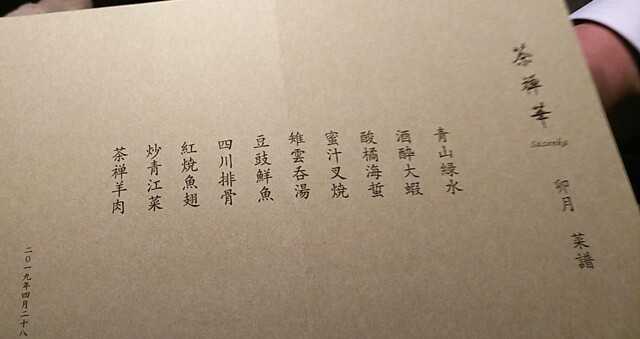 茶禅華
Sazenka
卯月 菜譜
青山緑水
酒醉大蝦
酸橘海蜇
蜜汁叉焼
雉雲呑湯
豆豉鮮魚
四川排骨
紅焼魚翅
炒青江菜
茶禅羊肉
二〇一九年四月二十八